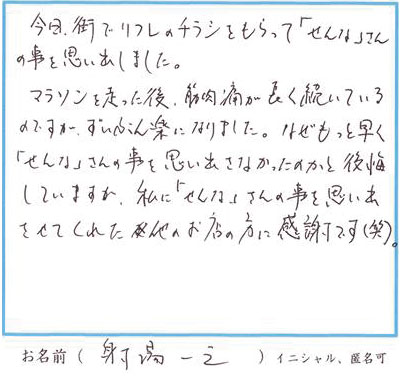 今日、街でリフレのチラシをもらって「せんな」さん
の事を思い出しました。
マラソンを走った後、筋肉痛が長く続いている
のですが、ずいぶん楽になりました。なぜもっと早く
「せんな」さんの事を思い出さなかったのかと後悔
していますが、私に「せんな」さんの事を思い出
させてくれた他のお店の方に感謝です(笑)。
お名前(射場一之)イニシャル、匿名可